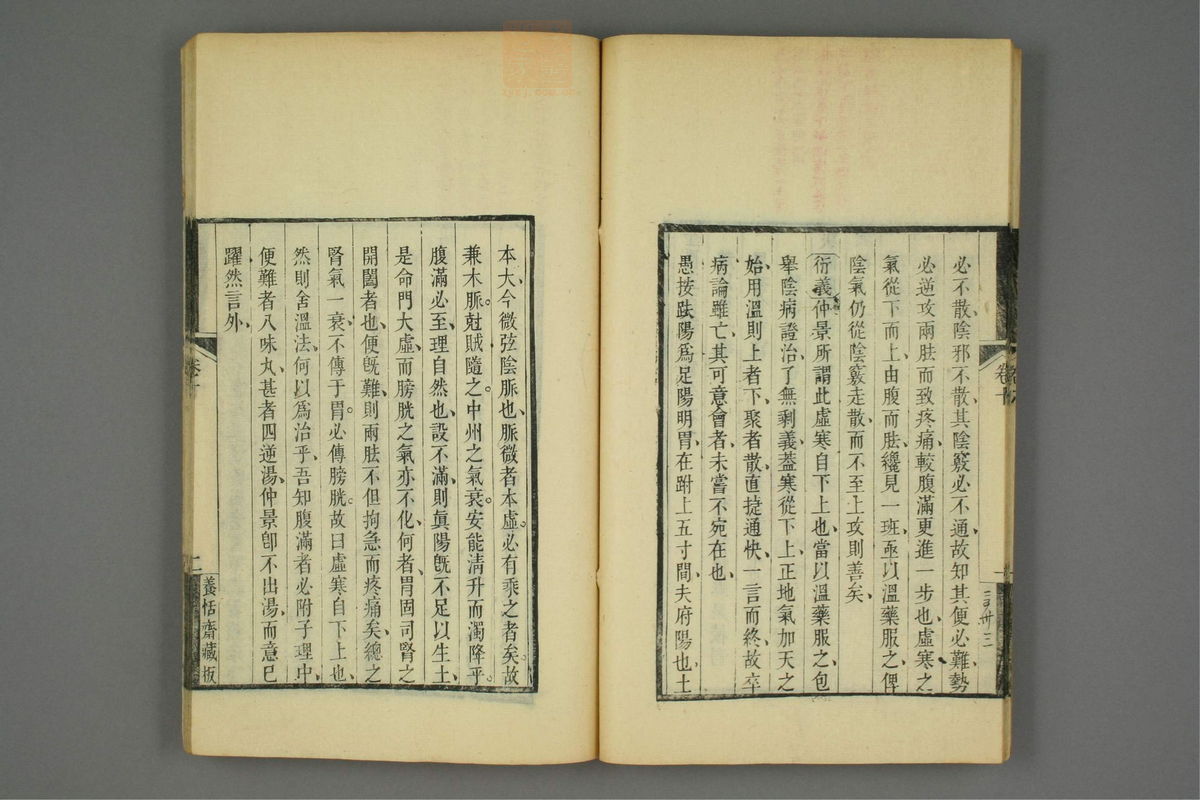 必不散陰邪不散其陰竅必不通故知其便必難勢
必逆攻兩胠而致疼痛較腹滿更進一步也虛寒之
氣從下而上由腹而胠纔見一班亟以溫藥服之俾
陰氣仍從陰竅走散而不至上攻則善矣
衍義仲景所謂此虛寒自下上也當以溫藥服之包
舉陰病證治了無剩義葢寒從下上正地氣加天之
始用溫則上者下聚者散直捷通快一言而終故卒
病論雖亡其可意會者未嘗不宛在也
愚按趺陽爲足陽明胃在跗上五寸間夫府陽也土
卷十
本大今微弦陰脈也脈微者本虛必有乘之者矣故
兼木脈尅賊隨之中州之氣衰安能淸升而濁降乎
腹滿必至理自然也設不滿則眞陽旣不足以生土
是命門大虛而膀胱之氣亦不化何者胃固司腎之
開闔者也便旣難則兩胠不但拘急而疼痛矣總之
腎氣一衰不傳于胃必傳膀胱故曰虛寒自下上也
然則舍溫法何以爲治乎吾知腹滿者必附子理中
便難者八味丸甚者四逆湯仲景卽不出湯而意已
躍然言外
卷十
二
養恬齋藏板